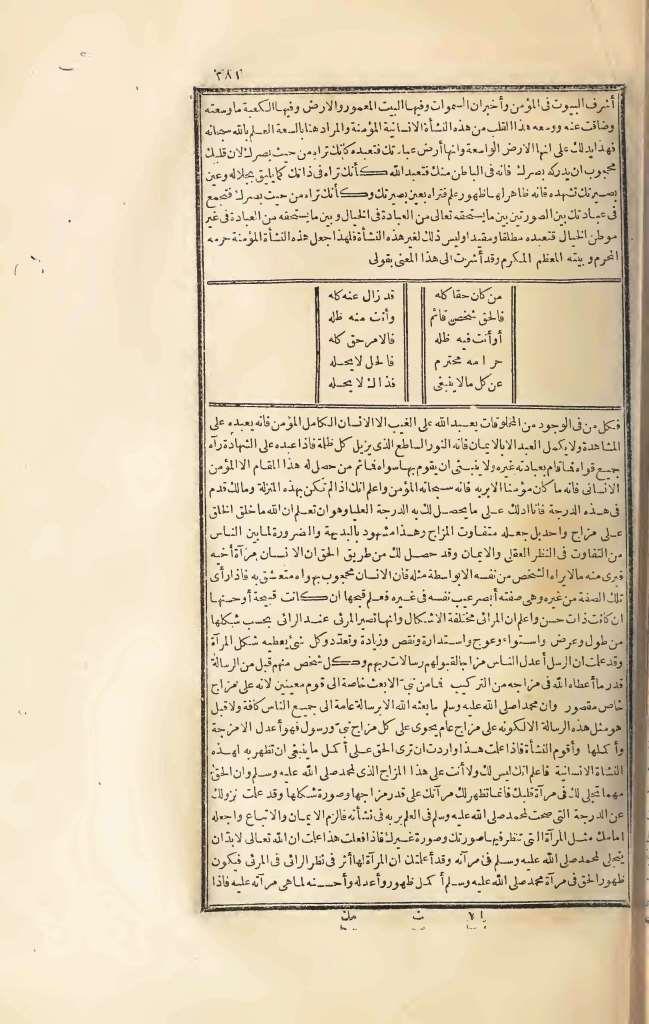 ٣٨١
أشرف البيوت فى المؤمن وأخبر ان السموات وفيها البيت المعمور والارض وفيها الكعبة ما وسعته
وضاقت عنه ووسعه هذا القلب من هذه النشأة الانسانية المؤمنة والمراد هنا بالسعة العلم بالله سبحانه
فهذا يدلك على انها الارض الواسعة وانها أرض عبادتك فتعبده كانك تراه من حيث بصرك لان قلبك
محجوب ان يدركه بصرك فانه فى الباطن منك فتعبد الله كأنك تراه فى ذاتك كما يليق بجلاله وعين
بصيرتك تشهده فانه ظاهر لها ظهور علم فتراه بعين بصيرتك وكأنك تراه من حيث بصرك فتجمع
فى عبادتك بين الصورتين بين ما يستحقه تعالى من العبادة فى الخيال وبين ما يستحقه من العبادة فى غير
موطن الخيال فتعبده مطلقا ومقيدا وليس ذلك لغير هذه النشأة فلهذا جعل هذه النشأة المؤمنة حرمه
المحرم وبيته المعظم المكرم وقد أشرت الى هذا المعنى بقولى
من كان حقا كله قد زال عنه كله
فالحق شخص قائم وأنت منه ظله
أو أنت فيه ظله فالامر حق كله
حرامه محترم فالحل لا يحله
عن كل ما لا ينبغى فذاك لا يحله
فكل من فى الوجود من المخلوقات يعبد الله على الغيب الا الانسان الكامل المؤمن فانه يعبده على
المشاهدة ولا يكمل العبد الا بالايمان فانه النور الساطع الذى يزيل كل ظلمة فاذا عبده على الشهادة رآه
جميع قواه فما قام بعبادته غيره ولا ينبغى ان يقوم بها سواه فما ثم من حصل له هذا المقام الا المؤمن
الانسانى فانه ما كان مؤمنا الا بربه فانه سبحانه المؤمن واعلم انك اذا لم تكن بهذه المنزلة ومالك قدم
فى هذه الدرجة فانا ادلك على ما يحصل لك به الدرجة العليا وهو ان تعلم ان الله ما خلق الخلق
على مزاج واحد بل جعله متفاوت المزاج وهذا مشهود بالبديهة والضرورة لما بين الناس
من التفاوت فى النظر العقلى والايمان وقد حصل لك من طريق الحق ان الانسان مرآة أخيه
فيرى منه ما لا يراه الشخص من نفسه الا بواسطة مثله فان الانسان محجوب بهواه متعشق به فاذا رأى
تلك الصفة من غيره وهى صفته أبصر عيب نفسه فى غيره فعلم قبحها ان كانت قبيحة أو حسنها
ان كانت ذات حسن واعلم ان المرائى مختلفة الاشكال وانها تصير المرئى عند الرائى بحسب شكلها
من طول وعرض واستواء وعوج واستدارة ونقص وزيادة وتعدد وكل شئ يعطيه شكل المرآة
وقد علمت ان الرسل أعدل الناس مزاجا لقبولهم رسالات ربهم وكل شخص منهم قبل من الرسالة
قدر ما أعطاه الله فى مزاجه من التركيب فما من نبى الا بعث خاصة الى قوم معينين لانه على مزاج
خاص مقصور وان محمدا صلى الله عليه وسلم ما بعثه الله الا برسالة عامة الى جميع الناس كافة ولا قبل
هو مثل هذه الرسالة الا لكونه على مزاج عام يحوى على كل مزاج نبى ورسول فهو أعدل الامزجة
وأكلها وأقوم النشآة فاذا علمت هذا واردت ان ترى الحق على أكمل ما ينبغى ان تظهر به لهذه
النشاة الانسانية فاعلم انك ليس لك ولا أنت على هذا المزاج الذى لمحمد صلى الله عليه وسلم وان الحق
مهما تجلى لك فى مرآة قلبك فانما تظهر لك مرآتك على قدر مزاجها وصورة شكلها وقد علمت نزولك
عن الدرجة التى صحت لمحمد صلى الله عليه وسلم فى العلم بربه فى نشأته فالزم الايمان والاتباع واجعله
امامك مثل المرآة التى تنظر فيها صورتك وصورة غيرك فاذا فعلت هذا علمت ان الله تعالى لابد ان
يتجلى لمحمد صلى الله عليه وسلم فى مرآته وقد أعلمتك ان المرآة لها أثر فى نظر الرائى فى المرئى فيكون
ظهور الحق فى مرآة محمد صلى الله عليه وسلم أكمل ظهور وأعدله وأحسنه لما هى مرآته عليه فاذا